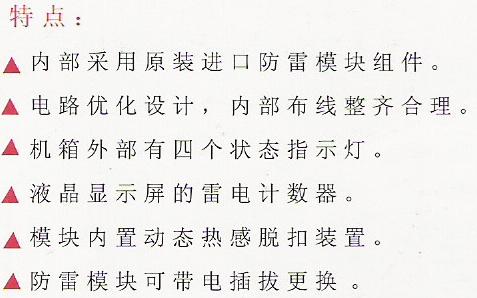 特点：
▲内部采用原装进口防雷模块组件。
▲电路优化设计，内部布线整齐合理。
▲机箱外部有四个状态指示灯。
▲液晶显示屏的雷电计数器。
▲模块内置动态热感脱扣装置。
▲防雷模块可带电插拔更换。